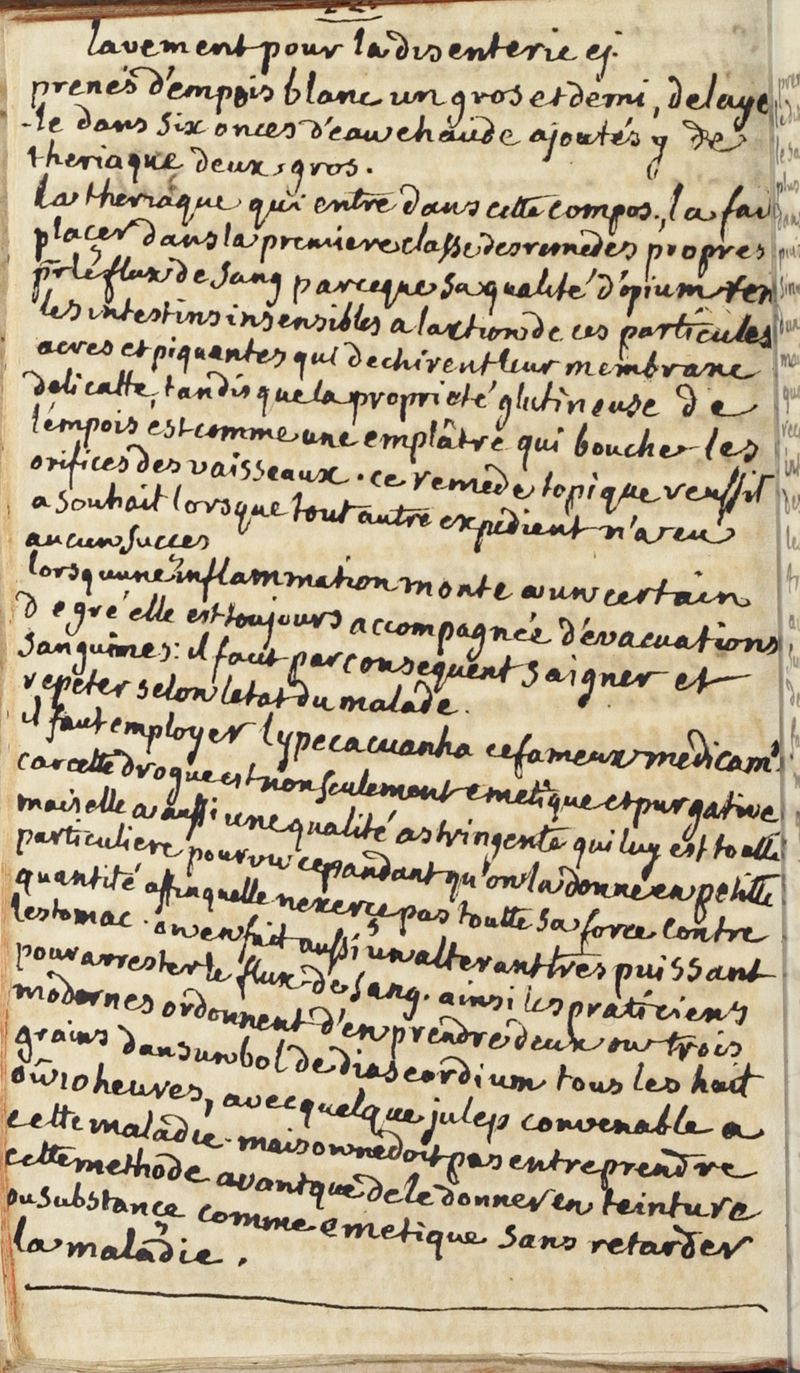 lavement pour la disenterie ej.
prenés d'empois blanc un gros et demi, delaye
-le dans six onces d'eau chaude ajoutés y de
theriaque deux gros.
la theriaque qui entre dans cette compos., la fai
placer dans la premiere classe des remedes propres
pr le flux de sang parceque sa qualité d'opium ren
les intestins insensibles a laxtion de ces particules
acres et piquantes qui dechirent leur membrane
delicatte, tandis que la proprieté glutineuse de
l'empois est comme une emplâtre qui bouche les
orifices des vaisseaux. ce remede topique reussit
a souhait lorsque tout autre expedient n'a eu
aucun succes
lorsquune inflammation monte a un certain
degré elle est toujours accompagnée d'evacuations
sanguines: il faut par consequent saigner et
repeter selon letat du malade.
il faut employer lypecacuanha ce fameux medicamt.
car cette drogue est non seulement emetique et purgative
mais elle a aussi une qualité astringente qui luy est toutte
particuliere pourvu cepandant qu'on la donne en petitte
quantité affin quelle nexerce pas toutte sa force contre
lestomac. on en fait aussi un alterant tres puissant
pour arrester le flux de sang. ainsi les praticiens
modernes ordonnent d'en prendre deux ou trois
grains dans un bol de diascordium tous les huit
ou 10 heures, avec quelque julep convenable a
cette maladie. mais on ne doit pas entreprendre
cette methode avant que de le donner en teinture
ou substance comme emetique sans retarder
la maladie.